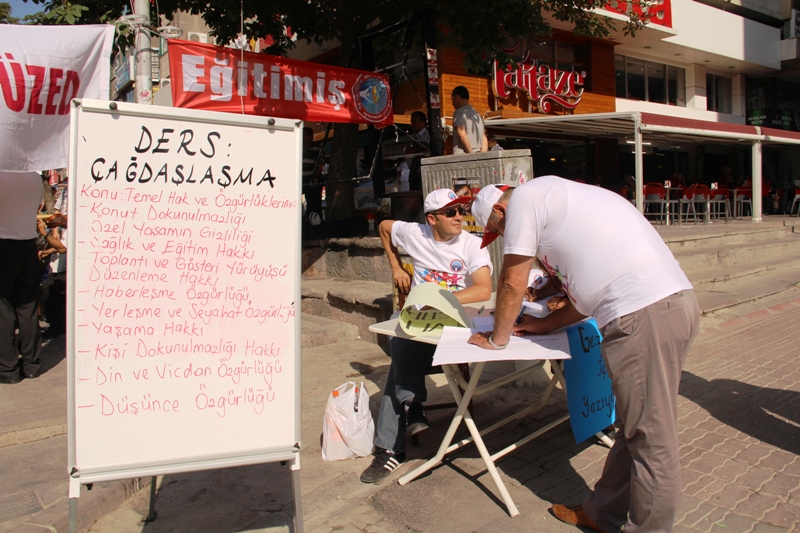 ÜZED
Eğitimiş
DERS:
ÇAĞDAŞLAŞMA
Konu: Temel Hak ve Özgürlüklerimiz
- Konut Dokunulmazlığı
- Özel Yaşamın Gizliliği
- Sağlık ve Eğitim Hakkı
- Toplantı ve Gösteri Yürüyüşü
Düzenleme Hakkı
- Haberleşme Özgürlüğü
- Yerleşme ve Seyahat Özgürlüğü
- Yaşama Hakkı
- Kişi Dokunulmazlığı Hakkı
- Din ve Vicdan Özgürlüğü
- Düşünce Özgürlüğü
Yazıyo